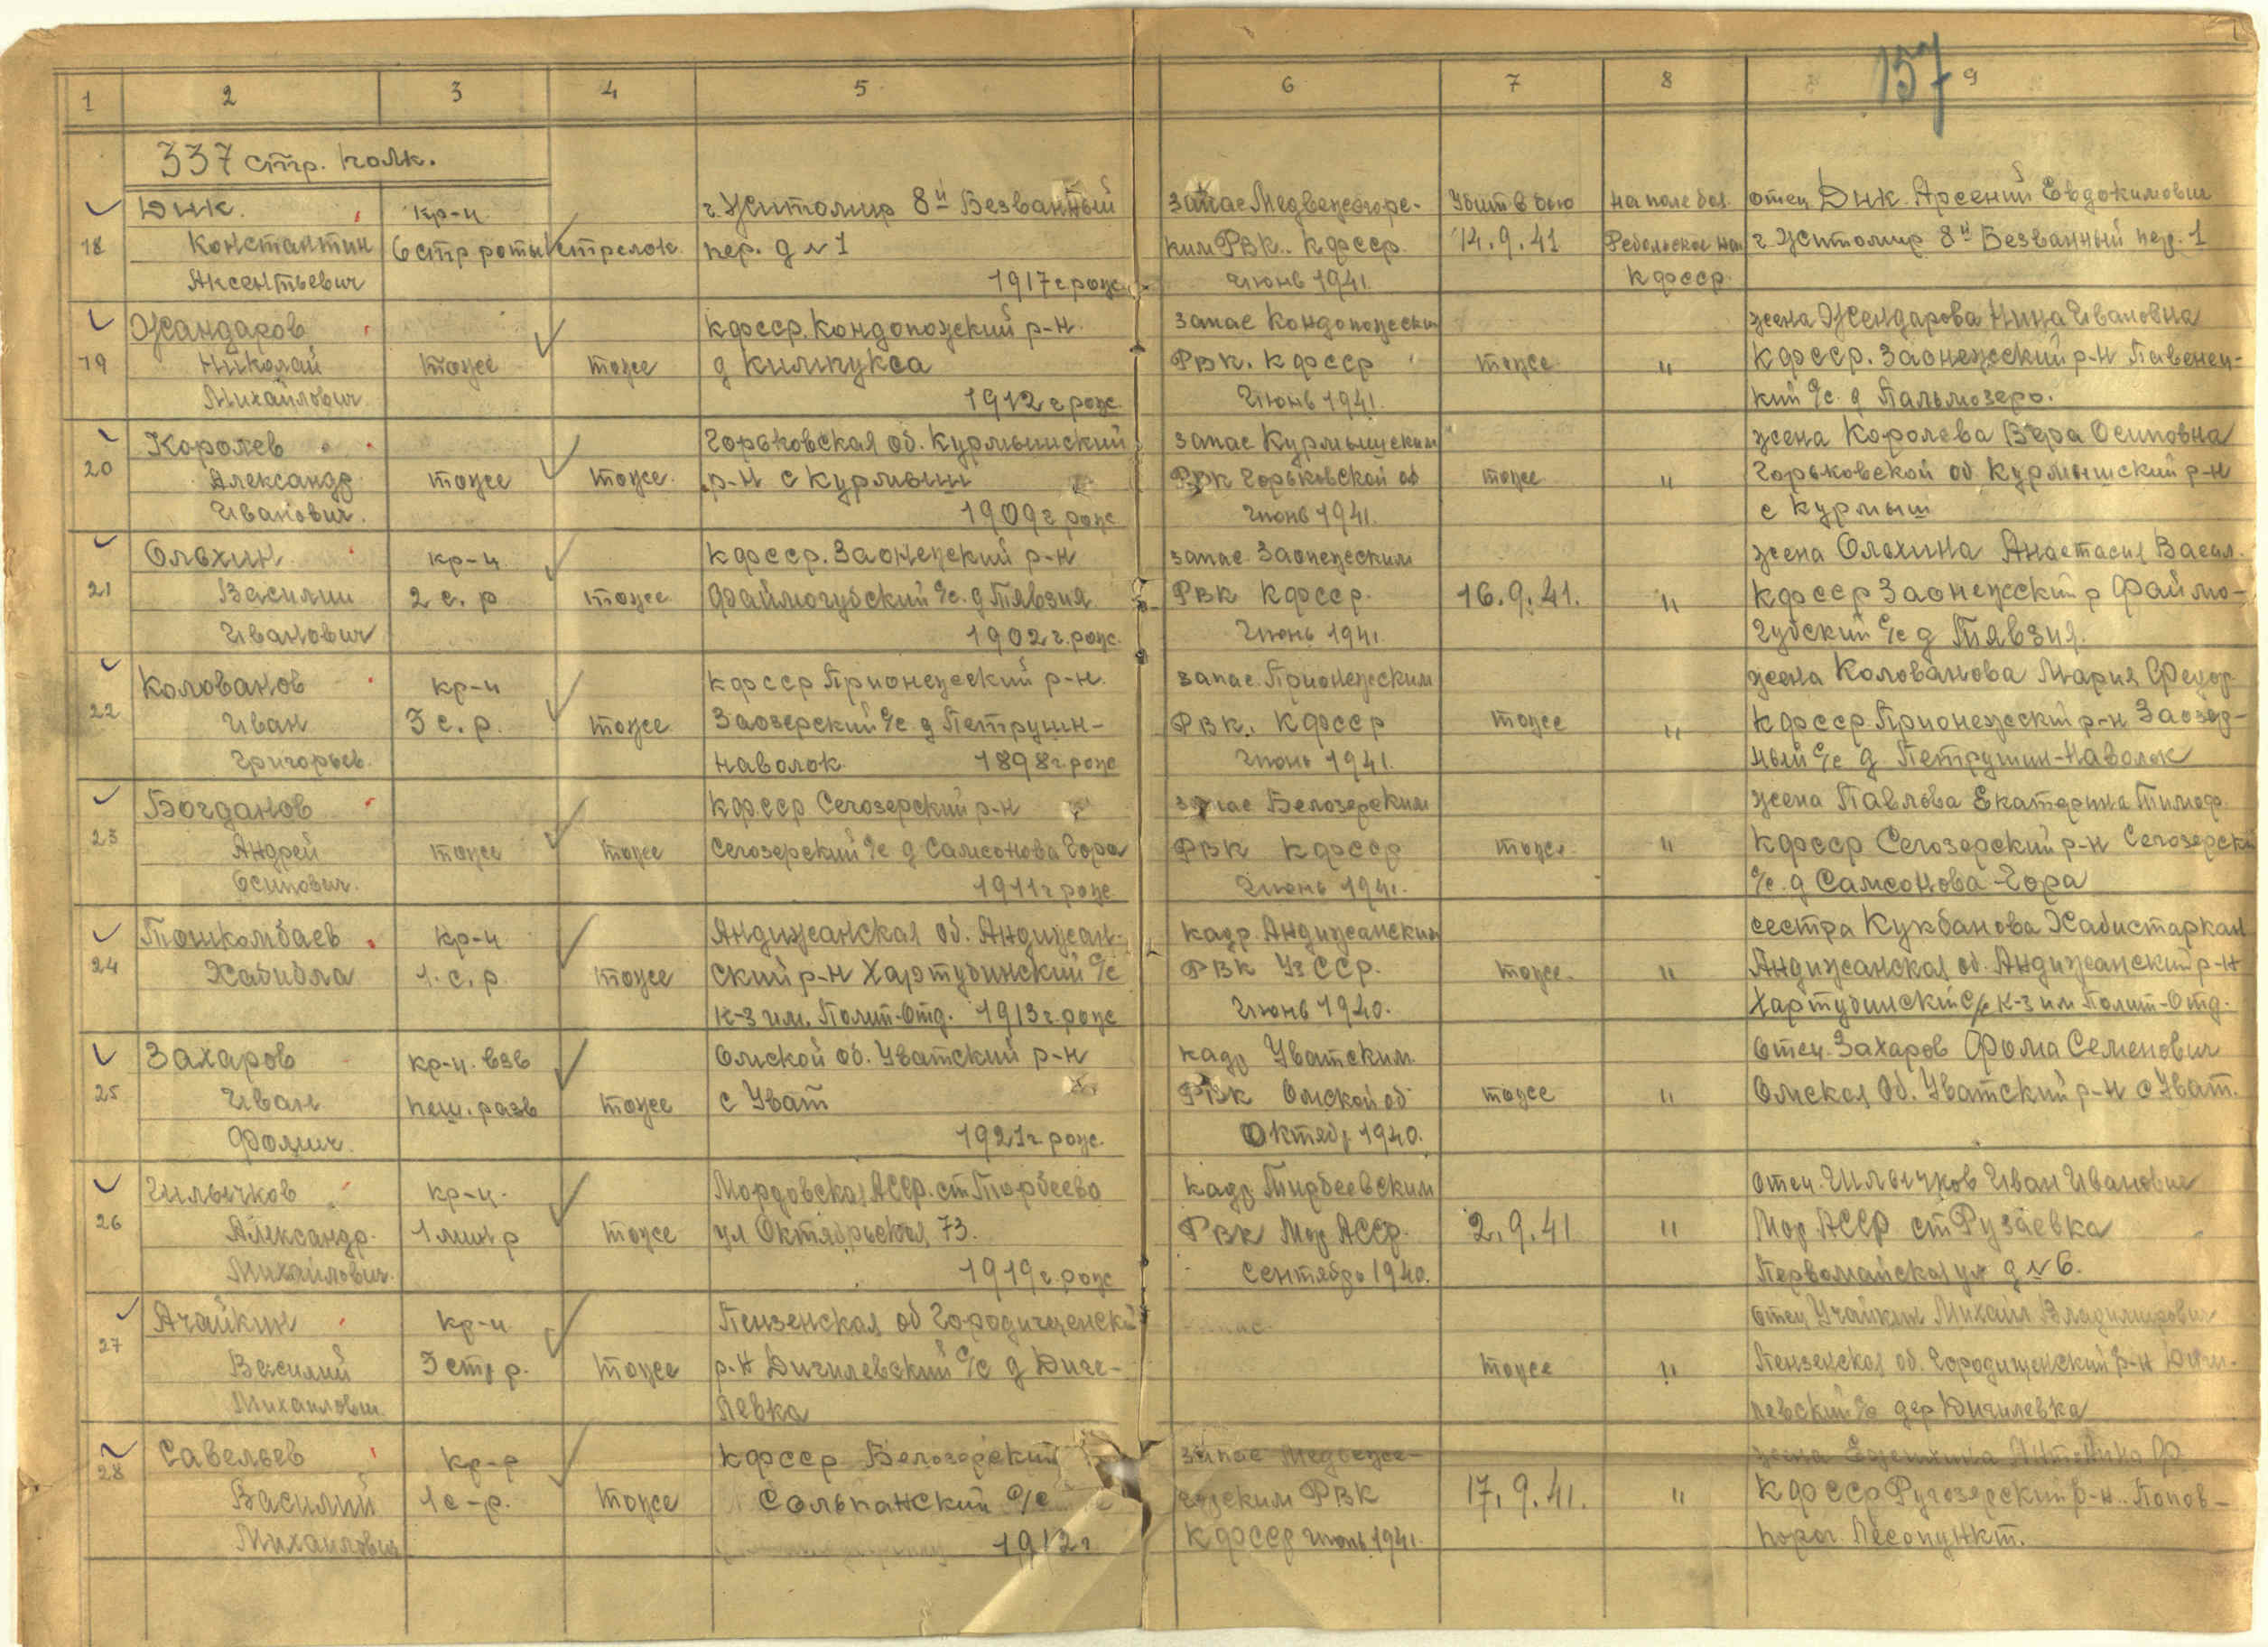 157
1 2 3 4 5 6 7 8 9
337 стр. полк.
18
Дик
Константин
Аксентьевич
кр-ц
6 стр роты
стрелок
г. Житомир 8й Безванный
пер. д № 1
1917 г рож
запас Медвежегорс-
ким РВК. КФССР.
Июнь 1941.
Убит в бою
14.9.41
на поле боя
Ребольское нап
КФССР.
отец Дик Арсений Евдокимович
г. Житомир 8й Безванный пер. 1
19
Жандаров
Николай
Михайлович
тоже
тоже
КФССР. Кондопожский р-н.
д Килпукса
1912 г рож
запас Кондопожским
РВК. КФССР
Июнь 1941.
тоже
"
жена Жендарова Нина Ивановна
КФССР. Заонежский р-н Павенец-
кий с/с. д Пальмозеро.
20
Королев
Александр
Иванович.
тоже
тоже.
Горьковская об. Курмышский
р-н с Курмыш
1909 г рож
запас Курмышским
РВК Горьковской об
Июнь 1941.
тоже
"
жена Королева Вера Осиповна
Горьковской об Курмышский р-н
с Курмыш
21
Олахин
Василий
Иванович
кр-ц
2 с. р
тоже
КФССР. Заонежский р-н
Файмогубский с/с. д Тявзия
1902 г. рож.
запас. Заонежским
РВК КФССР.
Июнь 1941.
16.9.41.
"
жена Олахина Анастасия Васил.
КФССР Заонежский р Файмо-
губский с/с д Тявзия.
22
Колованов
Иван
Григорьев.
кр-ц
3 с. р.
тоже
КФССР Прионежский р-н.
Заозерский с/с д Петрушин-
наволок. 1898 г рож
запас. Прионежским
РВК. КФССР
Июнь 1941.
тоже
"
жена Колованова Мария Федор.
КФССР Прионежский р-н Заозер-
ный с/с д Петрушин-Наволок
23
Богданов
Андрей
Осипович.
тоже
тоже
КФССР Сегозерский р-н
Сегозерский с/с д Самсонова Гора
1911 г рож
запас Белозерским
РВК КФССР
Июнь 1941.
тоже
"
жена Павлова Екатерина Тимоф.
КФССР Сегозерский р-н Сегозерский
с/с. д Самсонова Гора
24
Тошкомбаев
Хабибла
кр-ц
1. с. р.
тоже
Андижанская об. Андижан-
ский р-н Хартубинский с/с
к-з им. Полит-Отд. 1913 г. рож
кадр. Андижанским
РВК УзССР.
Июнь 1940.
тоже
"
сестра Кукбанова Хабистаркан
Андижанская об. Андижанский р-н
Хартубинский с/с к-з им Полит-Отд.
25
Захаров
Иван
Фомич.
кр-ц. взв
пеш. разв
тоже
Омской об. Уватский р-н
с Уват
1921 г рож.
кадр Уватским
РВК Омской об
Октябр 1940.
тоже
"
Отец. Захаров Фома Семенович
Омская об. Уватский р-н с Уват.
26
Чилычков
Александр.
Михайлович.
кр-ц.
1 мин р
тоже
Мордовская АССР. ст Торбеево
ул Октябрьская 73.
1919 г. рож
кадр Тирбеевским
РВК Мор АССР.
Сентябрь 1940.
2.9.41
"
отец. Чилычков Иван Иванович
Мор АССР ст Рузаевка
Первомайская ул д № 6.
27
Ачайкин
Василий
Михаилович
кр-ц
3 стр р.
тоже
Пензенская об Городищенский
р-н Дигилевский с/с д Диге-
левка
запас
тоже
"
отец Учайкин Михаил Владимирович
Пензенская об. Городищенский р-н Диги-
левский с/с дер Дигилевка
28
Савельев
Василий
Михаилович
кр-р
1 с-р.
тоже
КФССР Белогорский
Сольпанский с/с
1912 г
запас Медвеже-
горским РВК
КФССР Июнь 1941.
17.9.41.
"
жена
КФССР Ругозерский р-н. Попов-
порог Лесопункт.